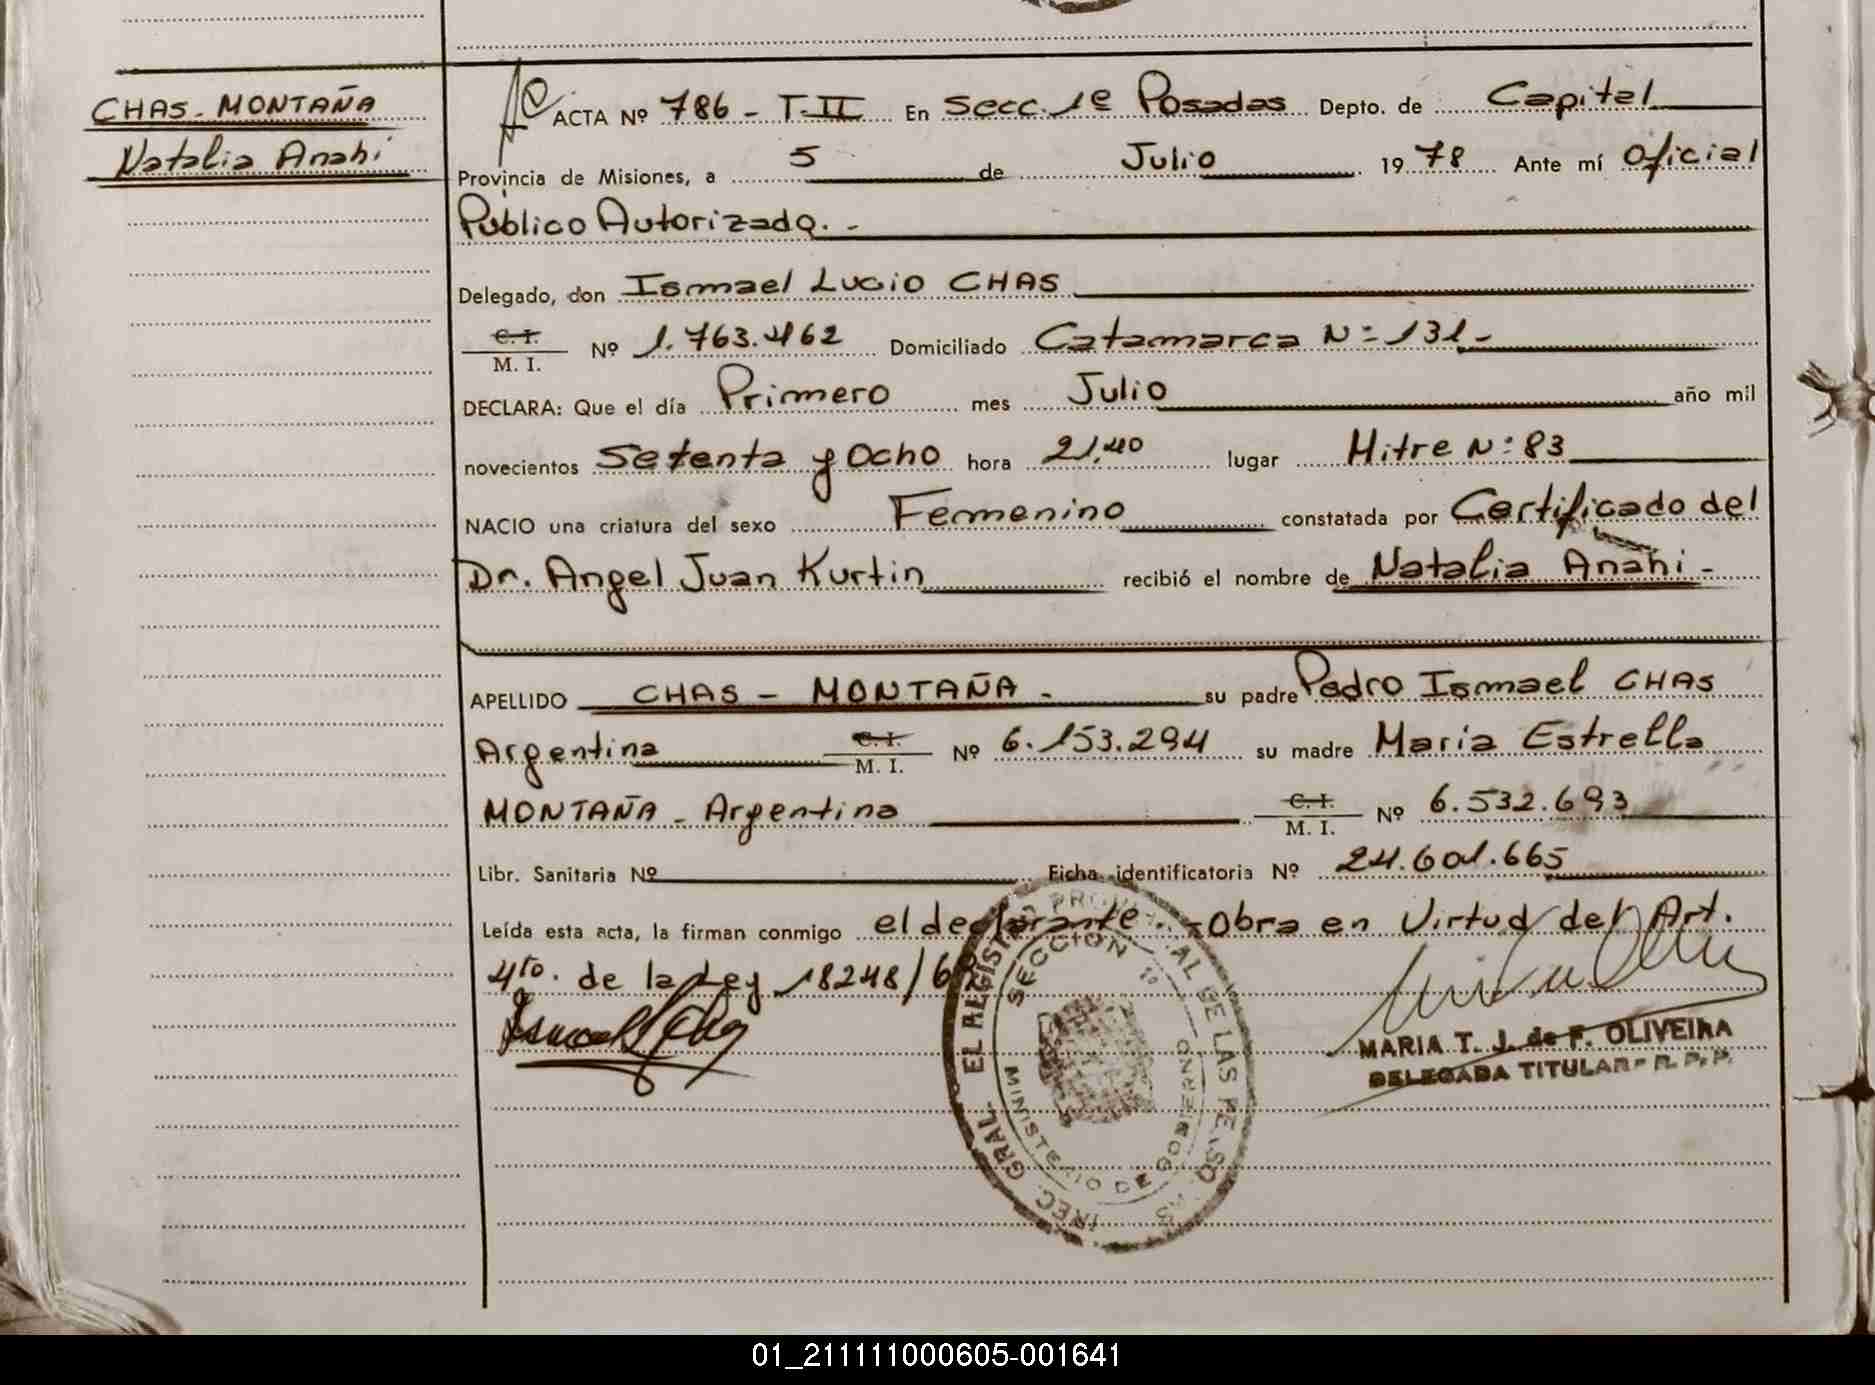 CHAS - MONTAÑA
Natalia Anahi
ACTA Nº 786 - T.II En Secc. 1ª Posadas Depto. de Capital
Provincia de Misiones, a 5 de Julio 1978 Ante mí Oficial
Público Autorizado. -
Delegado, don Ismael Lucio CHAS
C. I.
M. I. Nº 1.763.462 Domiciliado Catamarca N: 131 -
DECLARA: Que el día Primero mes Julio año mil
novecientos Setenta y Ocho hora 21,40 lugar Mitre N: 83
NACIO una criatura del sexo Femenino constatada por Certificado del
Dr. Angel Juan Kurtin recibió el nombre de Natalia Anahi -
APELLIDO CHAS - MONTAÑA - su padre Pedro Ismael CHAS
Argentina C. I. M. I. Nº 6.153.294 su madre Maria Estrella
MONTAÑA - Argentina C. I. M. I. Nº 6.532.693
Libr. Sanitaria Nº Ficha identificatoria Nº 24.601.665
Leída esta acta, la firman conmigo el declarante. - Obra en Virtud del Art.
4to. de la Ley 18248/69
MARIA T. J. de F. OLIVEIRA
DELEGADA TITULAR - R. P. P.
SECCION 1º
MINISTERIO DE GOBIERNO
01_211111000605-001641